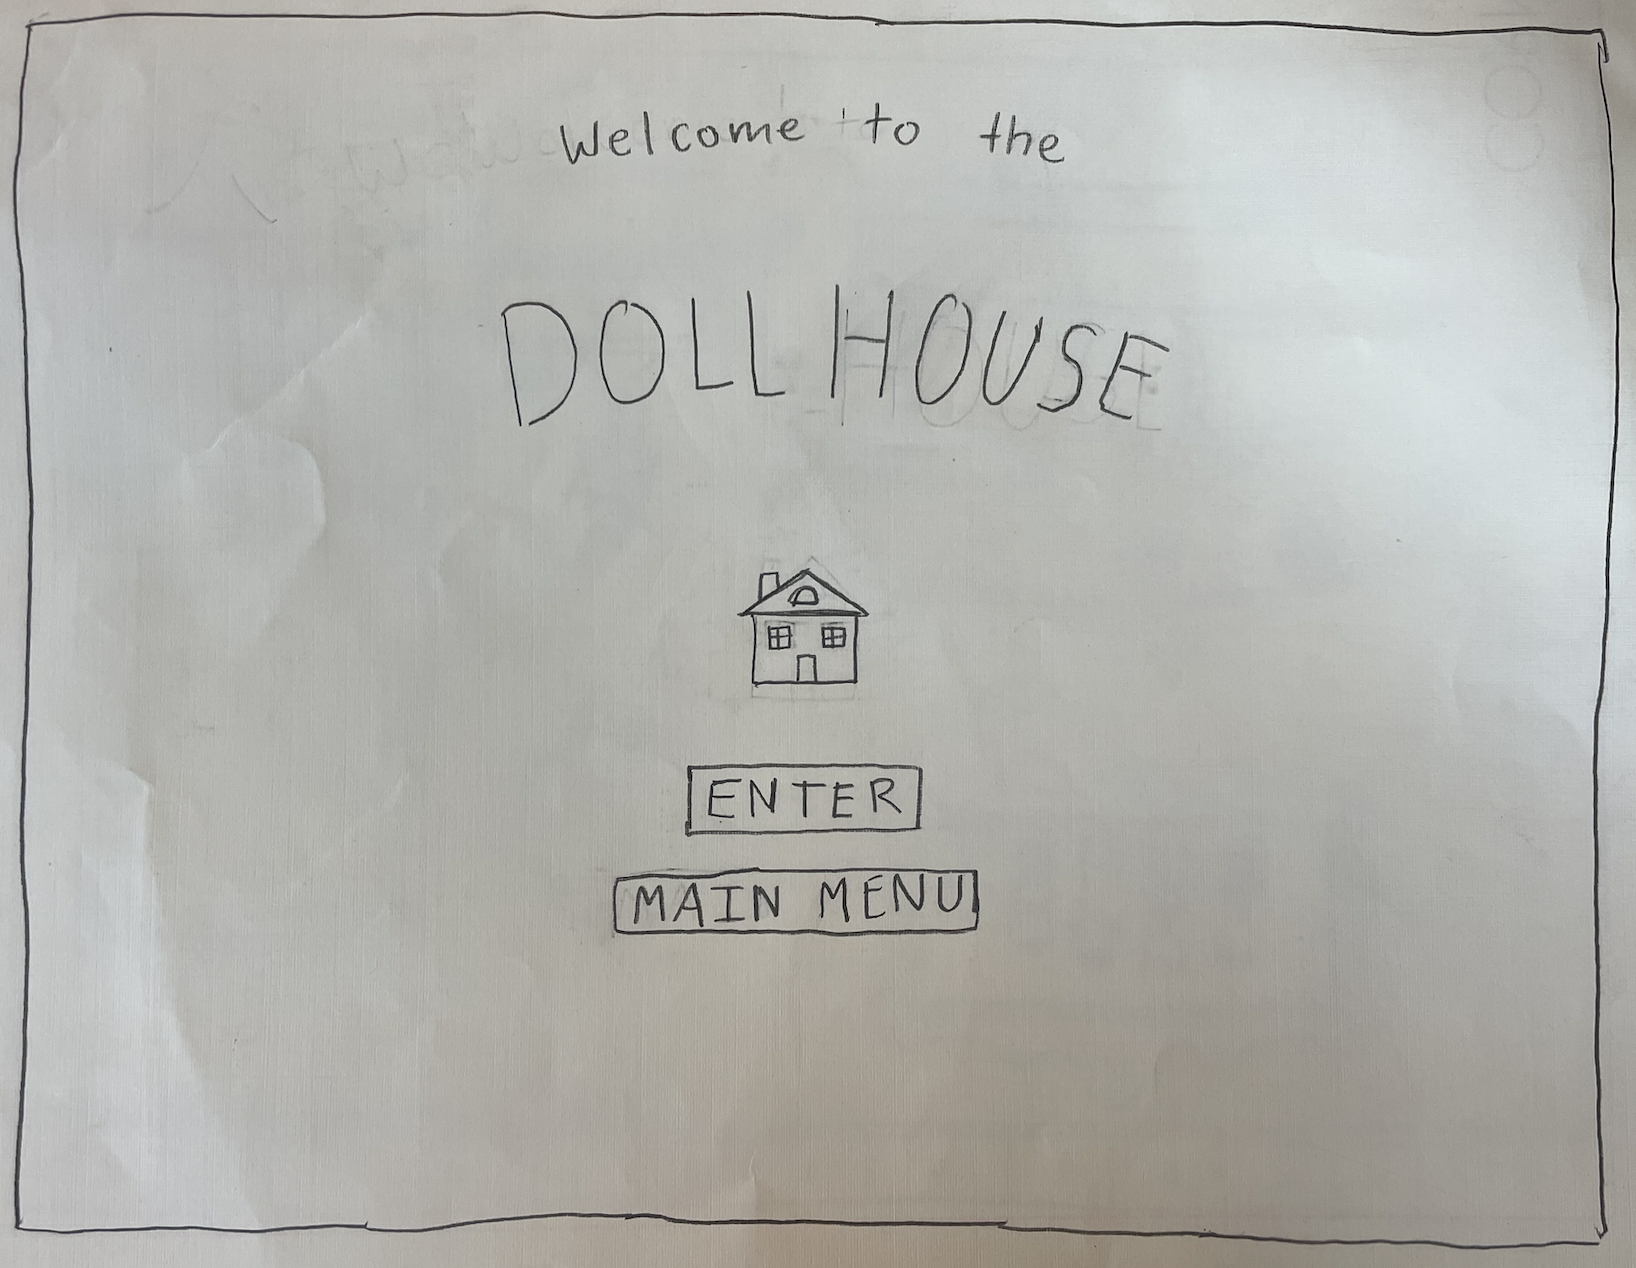 Welcome to the
DOLLHOUSE
ENTER
MAIN MENU